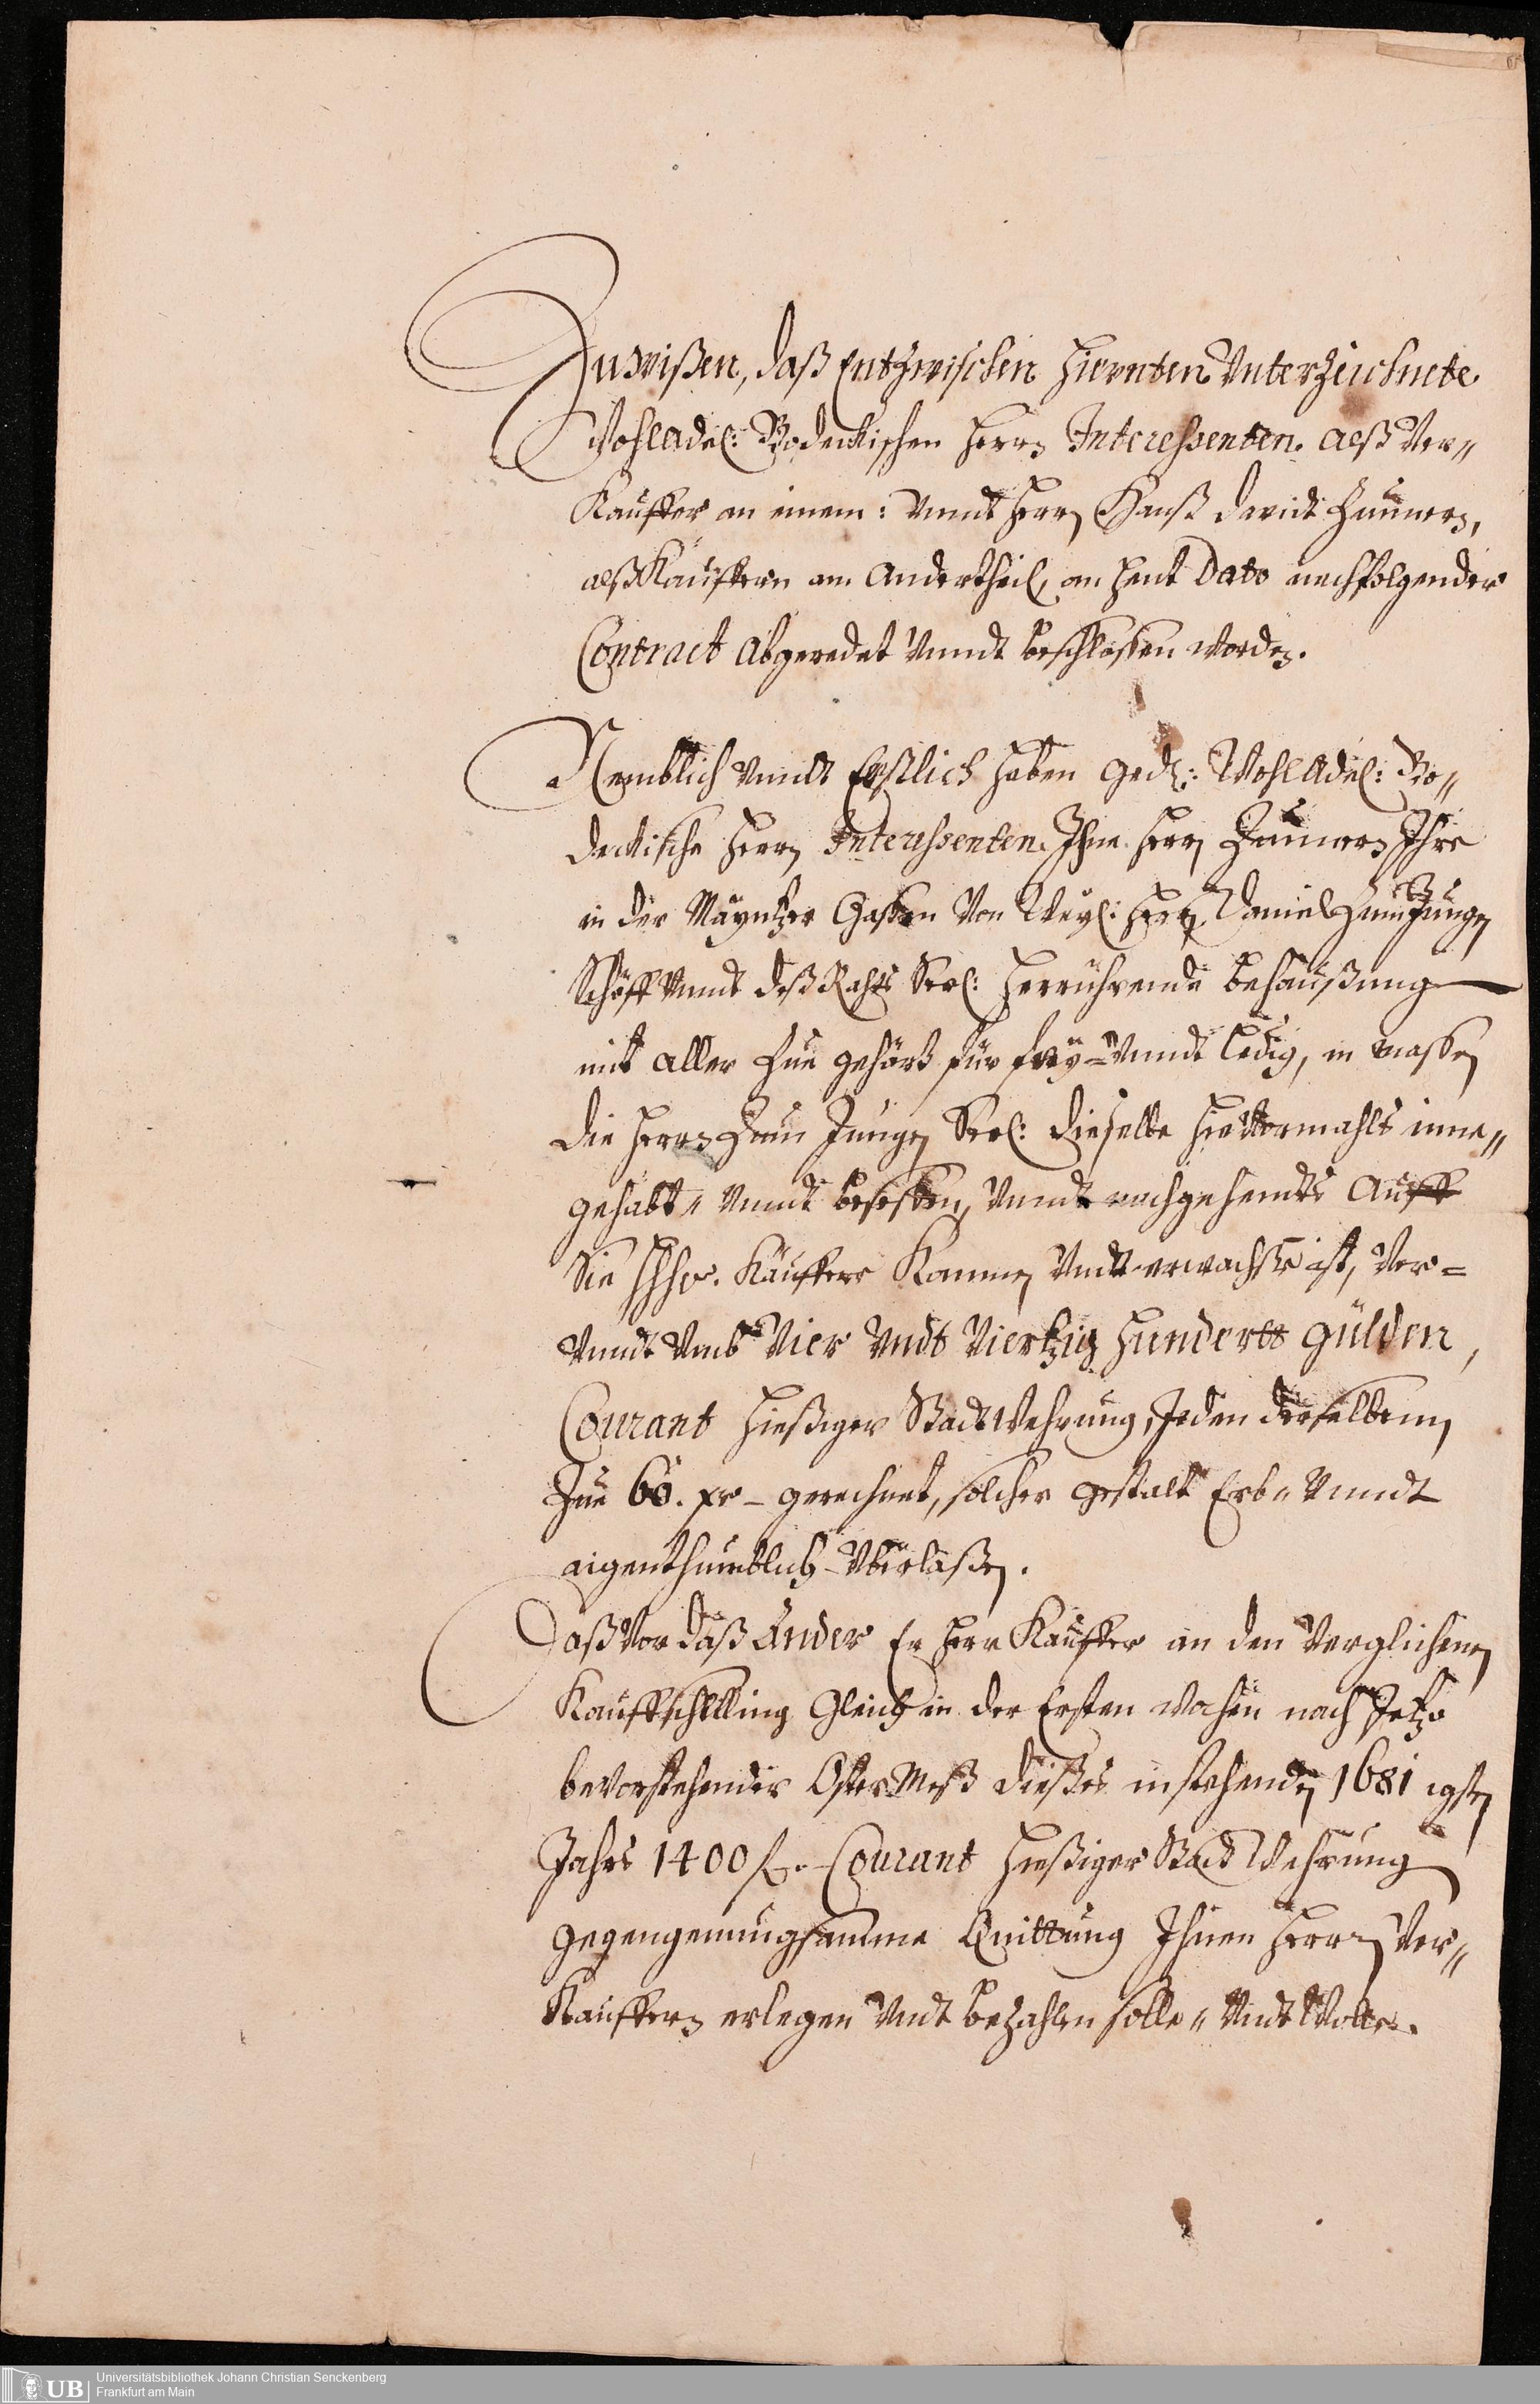 Zuwißen, daß Entzwischen hierunten Unterzeichnete
WohlAdel: Bodeckischen Herrn Interessenten. alß Ver„
Kauffer an einem: Unndt Herrn Hanß David Zunnern,
alß Kauffern am Andertheil, an heut Dato nachfolgender
Contract abgeredet Unndt beschlossen worden.
Nemblich Unndt Erstlich haben gedl: WohlAdel: Bo„
deckische Herrn Interessenten. Ihme Herrn Zunnern Ihre
in der Mayntzer Gassen Von Weyl: Herrn Daniel Zum Jungen
Schöff Unndt deß Rahts Seel: herrührende behaußung
mit aller Zue gehörd für frey= Unndt ledig, in massen
die Herrn Zum Jungen Seel: dieselbe hieVormahls inne„
gehabt„ Unndt besessen, Unndt nachgehendts Auff
Sie Käuffere Kommen Undt erwachsen ist, Ver=
Unndt Umb Vier Undt Viertzig Hundertt Gülden,
Courant hießiger Stadt Wehrung, Jeden derselbenn
Zue 60. xr – gerechnet, solcher gestalt Erb„ Unndt
aigenthumblich Uberlaßen.
Daß Vor daß Ander Er Herr Kauffer an den Verglichenen
Kauffschilling Gleich in der Ersten wochen nach Jetzo
beVorstehender OsterMeß dießes instehenden 1681 igsten
Jahrs 1400 f. Courant hießiger Stadt Wehrung
gegen genungsamme Quittung Ihnen Herrn Ver„
Kauffern erlegen Undt bezahlen solle„ Undt Wolle.
Universitätsbibliothek Johann Christian Senckenberg
Frankfurt am Main
UB